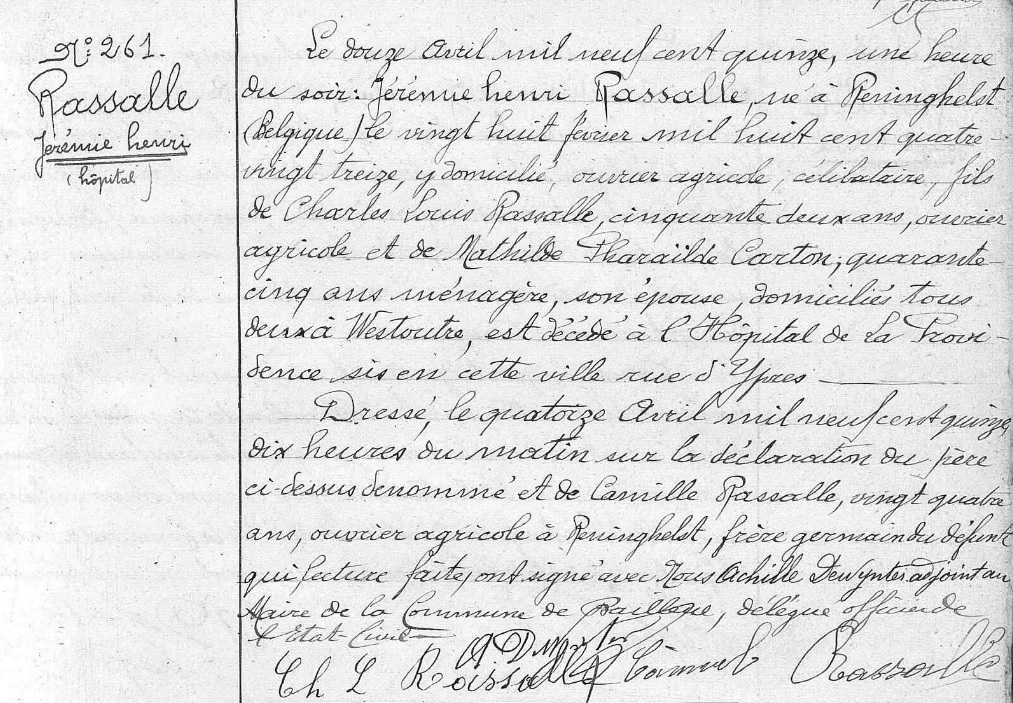 N° 261.
Rassalle
Jérémie henri
(hôpital)
Le douze Avril mil neuf cent quinze, une heure
du soir: Jérémie henri Rassalle, né à Reninghelst
(Belgique) le vingt huit février mil huit cent quatre
vingt treize, y domicilié, ouvrier agricole, célibataire, fils
de Charles Louis Rassalle, cinquante deux ans, ouvrier
agricole et de Mathilde Pharaïlde Carton, quarante
cinq ans ménagère, son épouse, domiciliés tous
deux à Westoutre, est décédé à l'Hôpital de La Provi-
dence sis en cette ville rue d'Ypres
Dressé, le quatorze Avril mil neuf cent quinze,
dix heures du matin sur la déclaration du père
ci-dessus denommé et de Camille Rassalle, vingt quatre
ans, ouvrier agricole à Reninghelst, frère germain du défunt
qui lecture faite, ont signé avec Nous Achille Dewynter adjoint au
Maire de la Commune de Bailleul, délégué officier de
l'Etat-Civil
Ch L Rassalle Camiel Rassalle